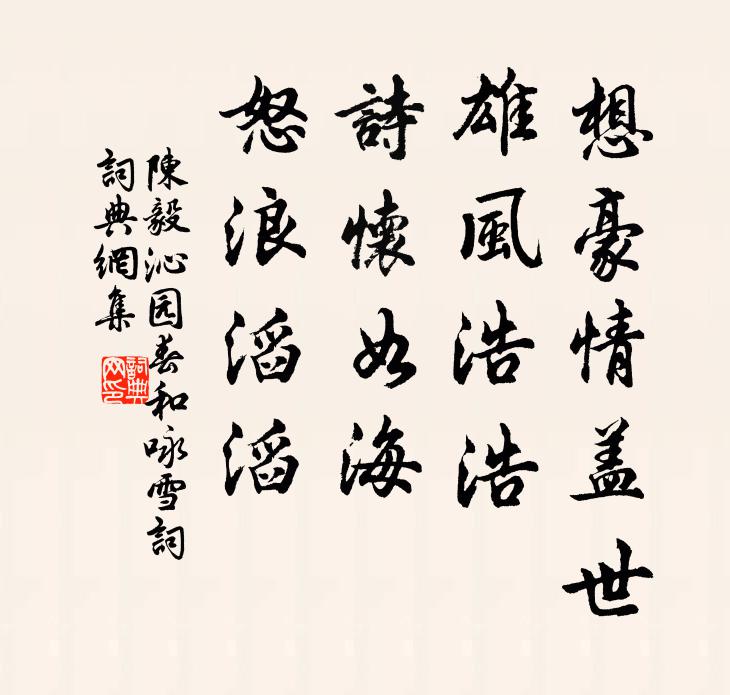 想豪情盖世
雄風浩浩
詩懷如海
怒浪滔滔
陳毅沁园春和咏雪詞
詞典網集
詞典
网印